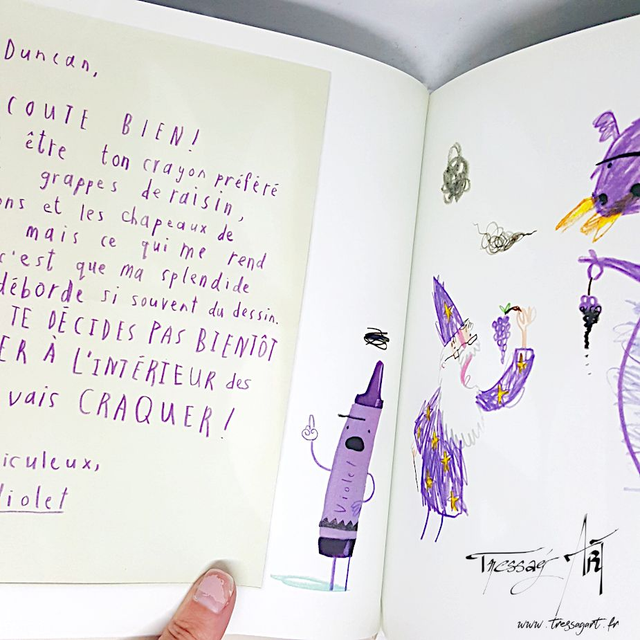 Duncan,
COUTE BIEN!
être ton crayon préféré
grappes de raisin,
ons et les chapeaux de
mais ce qui me rend
c'est que ma splendide
déborde si souvent du dessin.
TE DÉCIDES PAS BIENTÔT
ER À L'INTÉRIEUR des
vais CRAQUER!
iculeux,
Violet
Violet
Tressag' Art
www.tressagart.fr